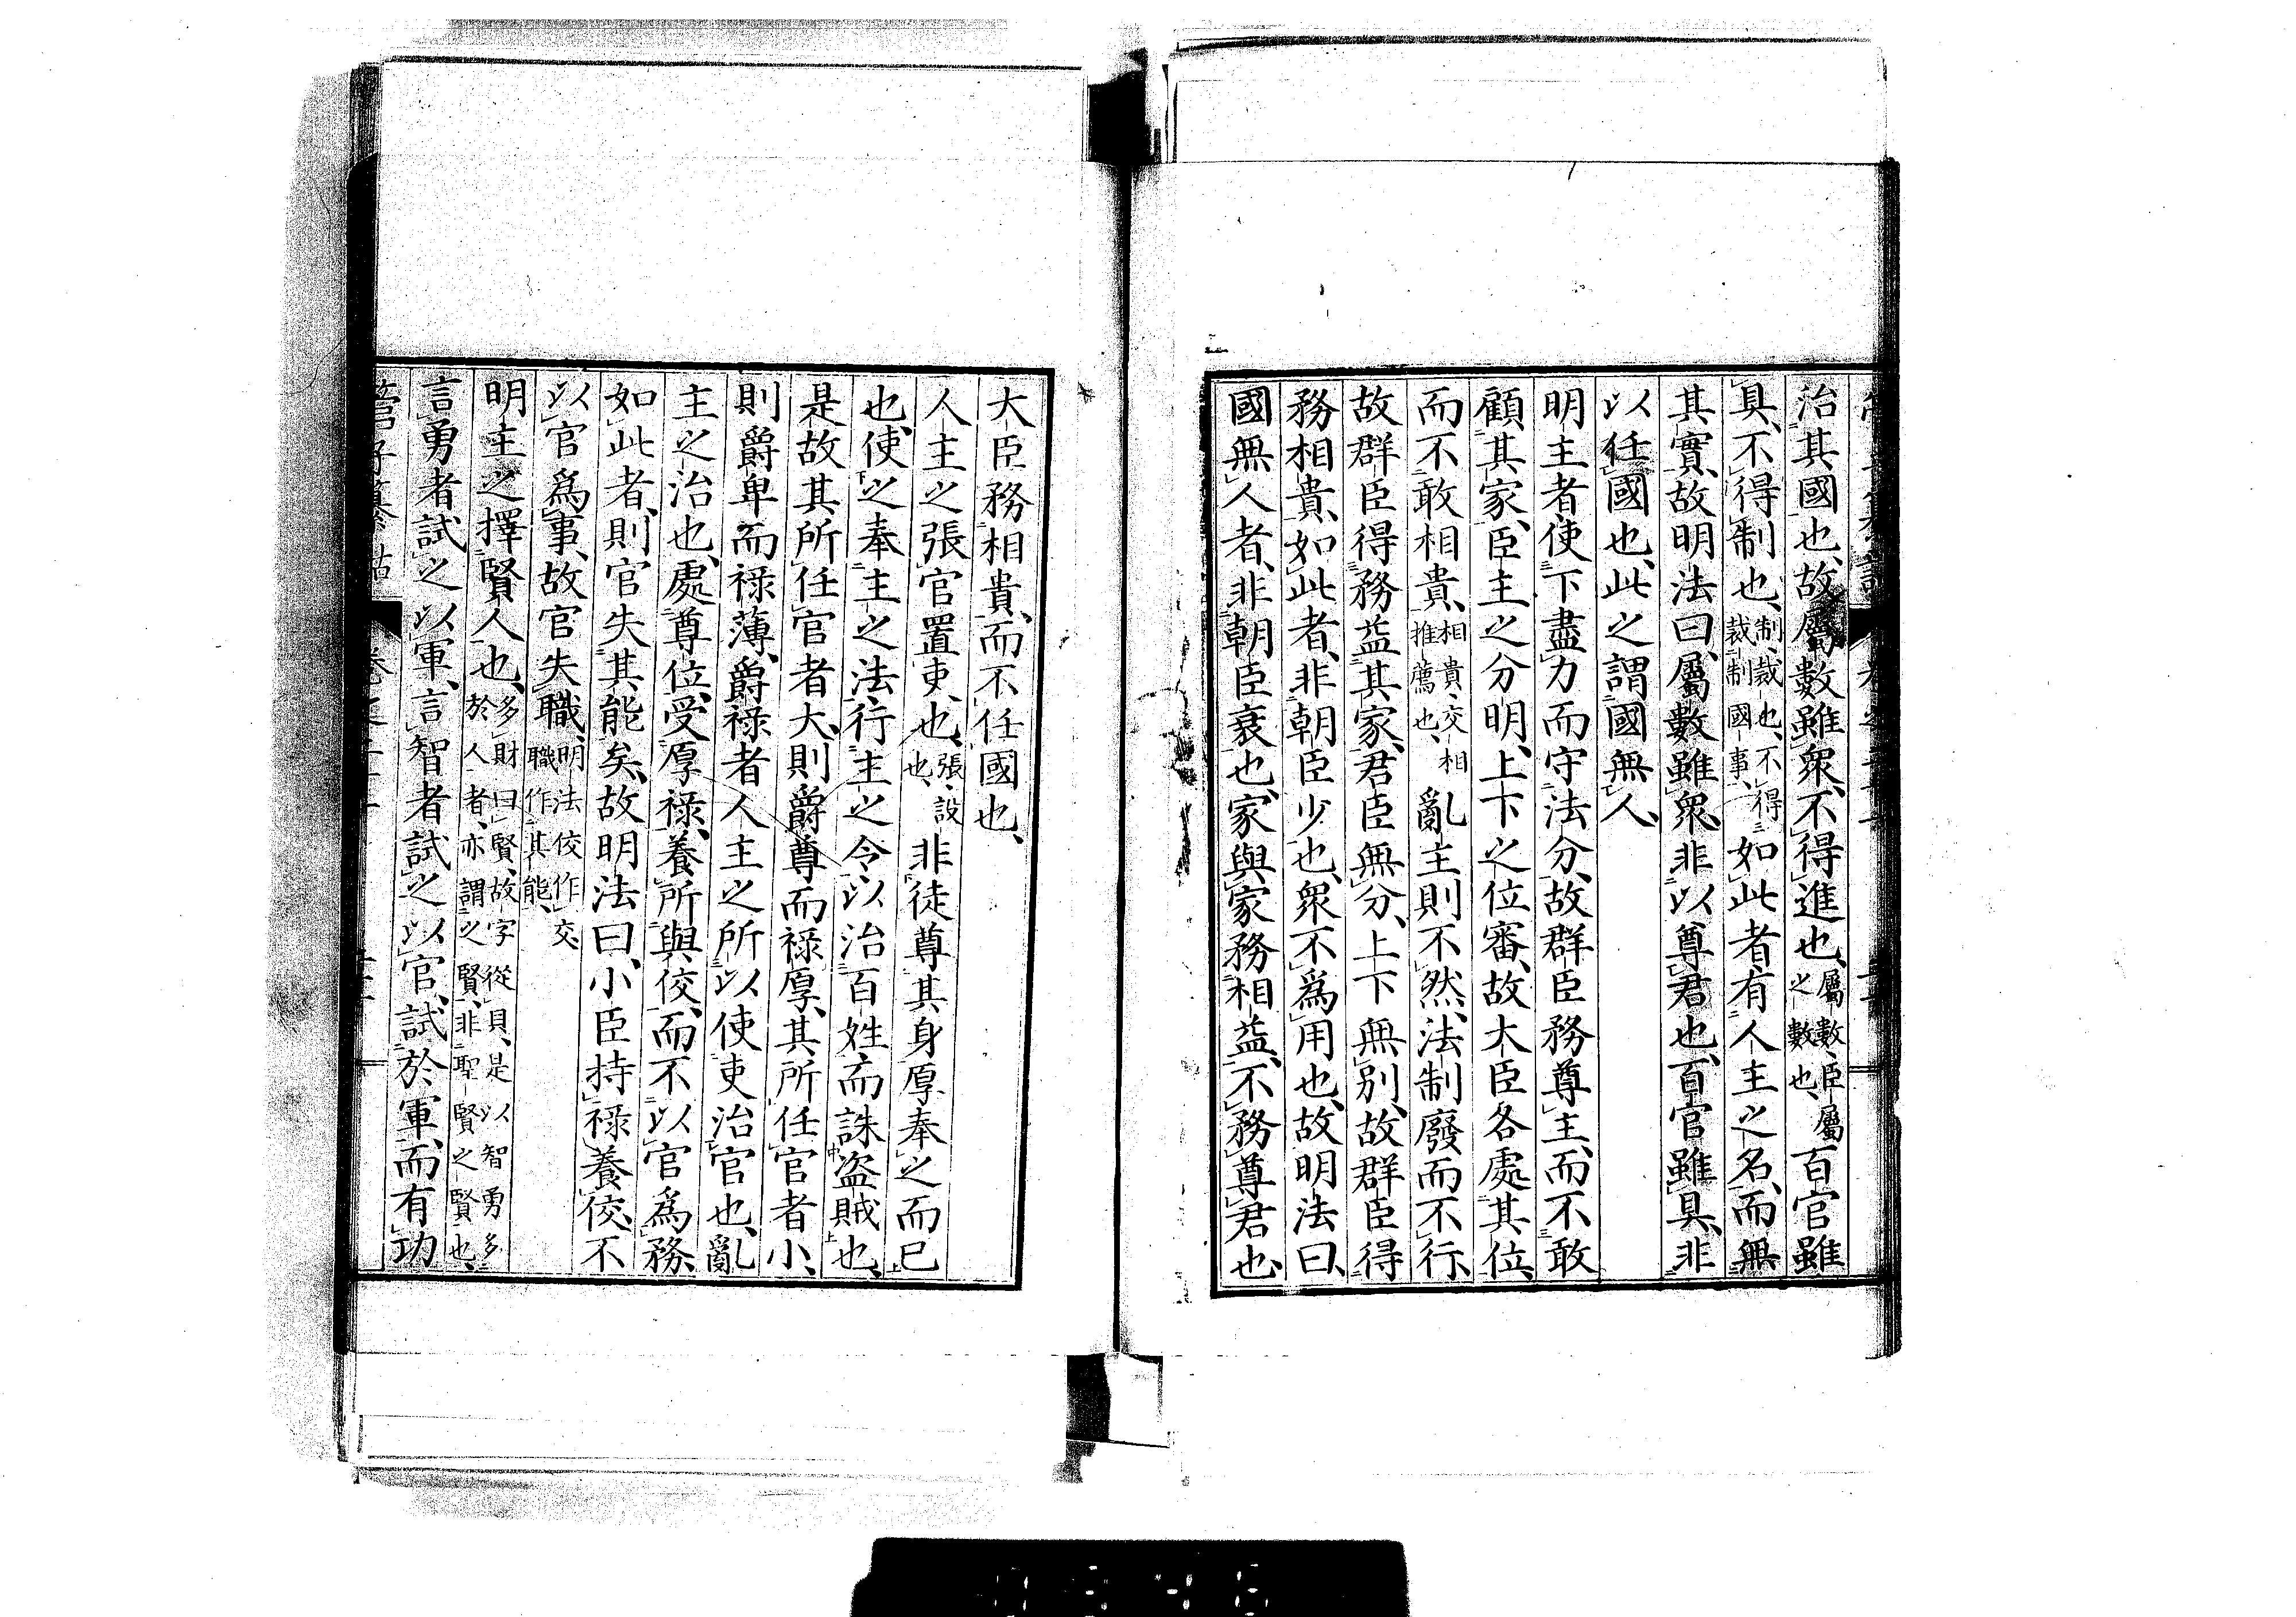 治其國也、故屬數雖衆、不得進也、屬數、臣屬之數也、百官雖
具、不得制也、制、裁也、不得裁制國事、如此者、有人主之名、而無
其實、故明法曰、屬數雖衆、非以尊君也、百官雖具、非
以任國也、此之謂國無人、
明主者、使下盡力而守法分、故群臣務尊主、而不敢
顧其家、臣主之分明、上下之位審、故大臣各處其位、
而不敢相貴、相貴、交相推薦也、亂主則不然、法制廢而不行、
故群臣得務益其家、君臣無分、上下無別、故群臣得
務相貴、如此者、非朝臣少也、衆不爲用也、故明法曰、
國無人者、非朝臣衰也、家與家務相益、不務尊君也、
大臣務相貴、而不任國也、
人主之張官置吏也、張、設也、非徒尊其身厚奉之而已
也、使之奉主之法、行主之令、以治百姓而誅盜賊也、
是故其所任官者大、則爵尊而祿厚、其所任官者小、
則爵卑而祿薄、爵祿者人主之所以使吏治官也、亂
主之治也、處尊位、受厚祿、養所與佼、而不以官爲務、
如此者、則官失其能矣、故明法曰、小臣持祿養佼、不
以官爲事、故官失職、明法佼作交、職作其能、
明主之擇賢人也、多財曰賢、故字從貝、是以智勇多於人者、亦謂之賢、非聖賢之賢也、
言勇者試之以軍、言智者試之以官、試於軍、而有功
管子纂詁 卷之二十一